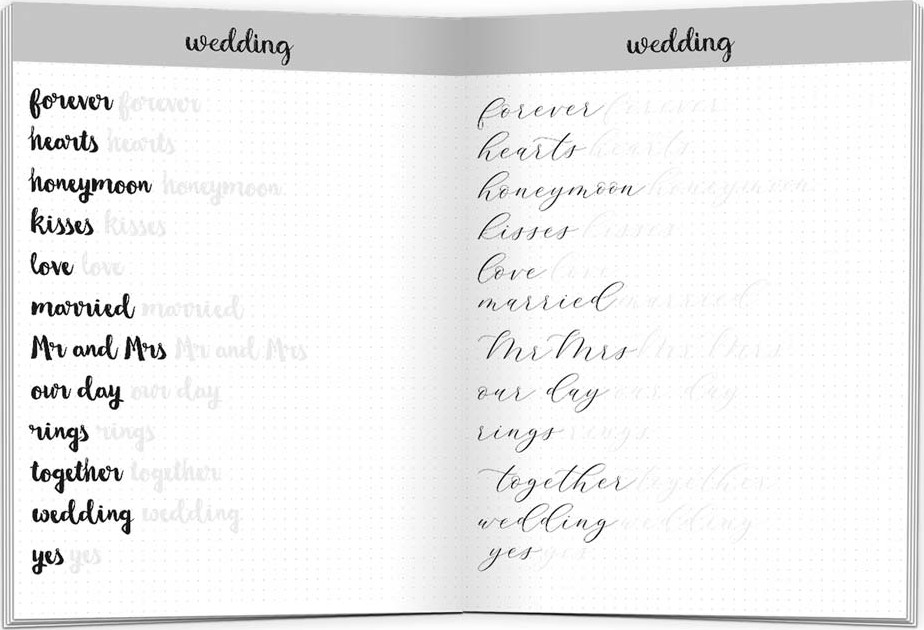 wedding
forever forever
hearts hearts
honeymoon honeymoon
kisses kisses
love love
married married
Mr and Mrs Mr and Mrs
our day our day
rings rings
together together
wedding wedding
yes yes
wedding
forever forever
hearts hearts
honeymoon honeymoon
kisses kisses
love love
married married
Mr Mrs Mrs Mrs
our day our day
rings rings
together together
wedding wedding
yes yes